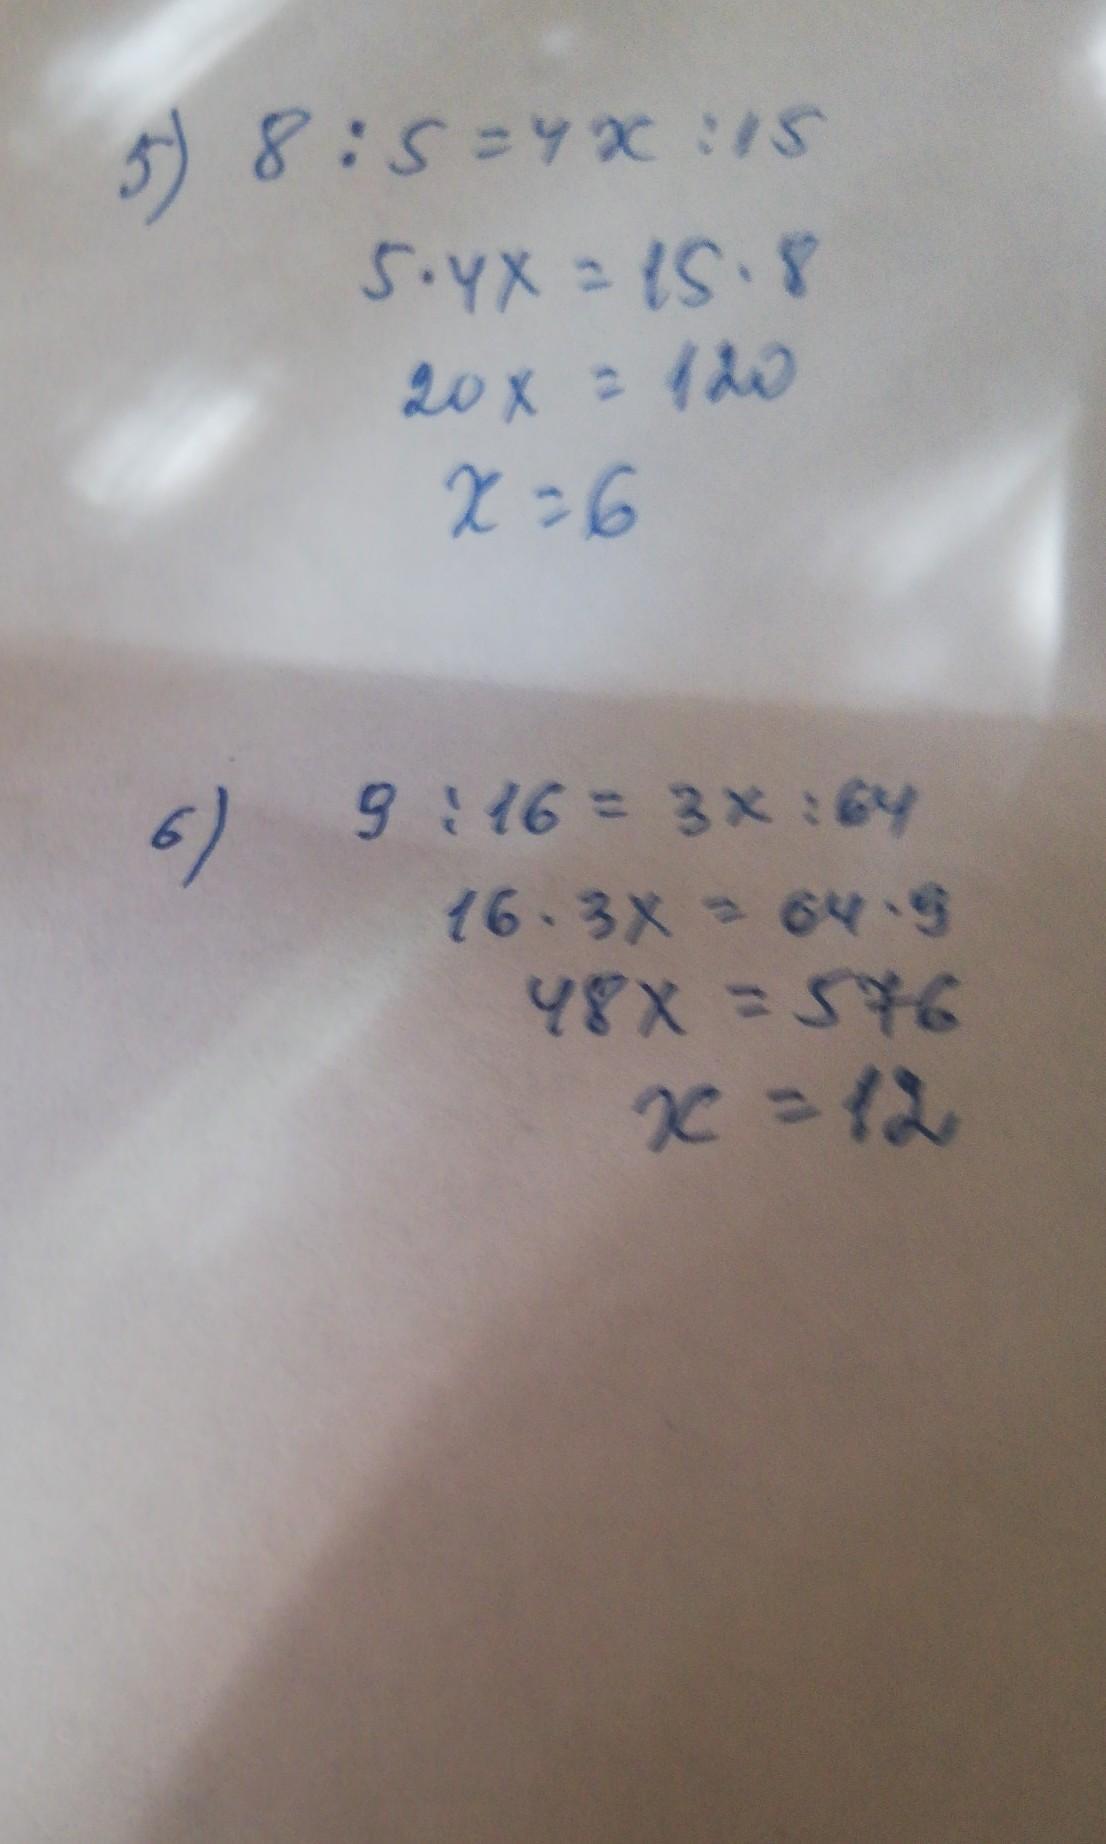 5) 8 : 5 = 4x : 15
5 · 4x = 15 · 8
20x = 120
x = 6
6) 9 : 16 = 3x : 64
16 · 3x = 64 · 9
48x = 576
x = 12